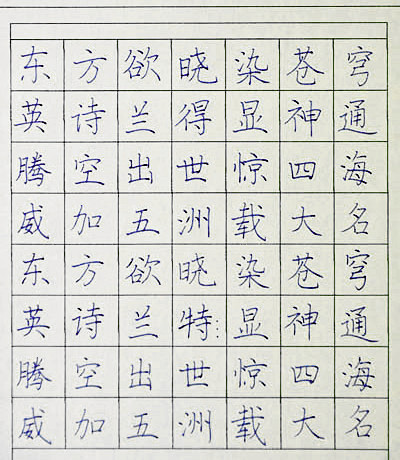 东方欲晓染苍穹
英诗兰得显神通
腾空出世惊四海
威加五洲载大名
东方欲晓染苍穹
英诗兰特显神通
腾空出世惊四海
威加五洲载大名